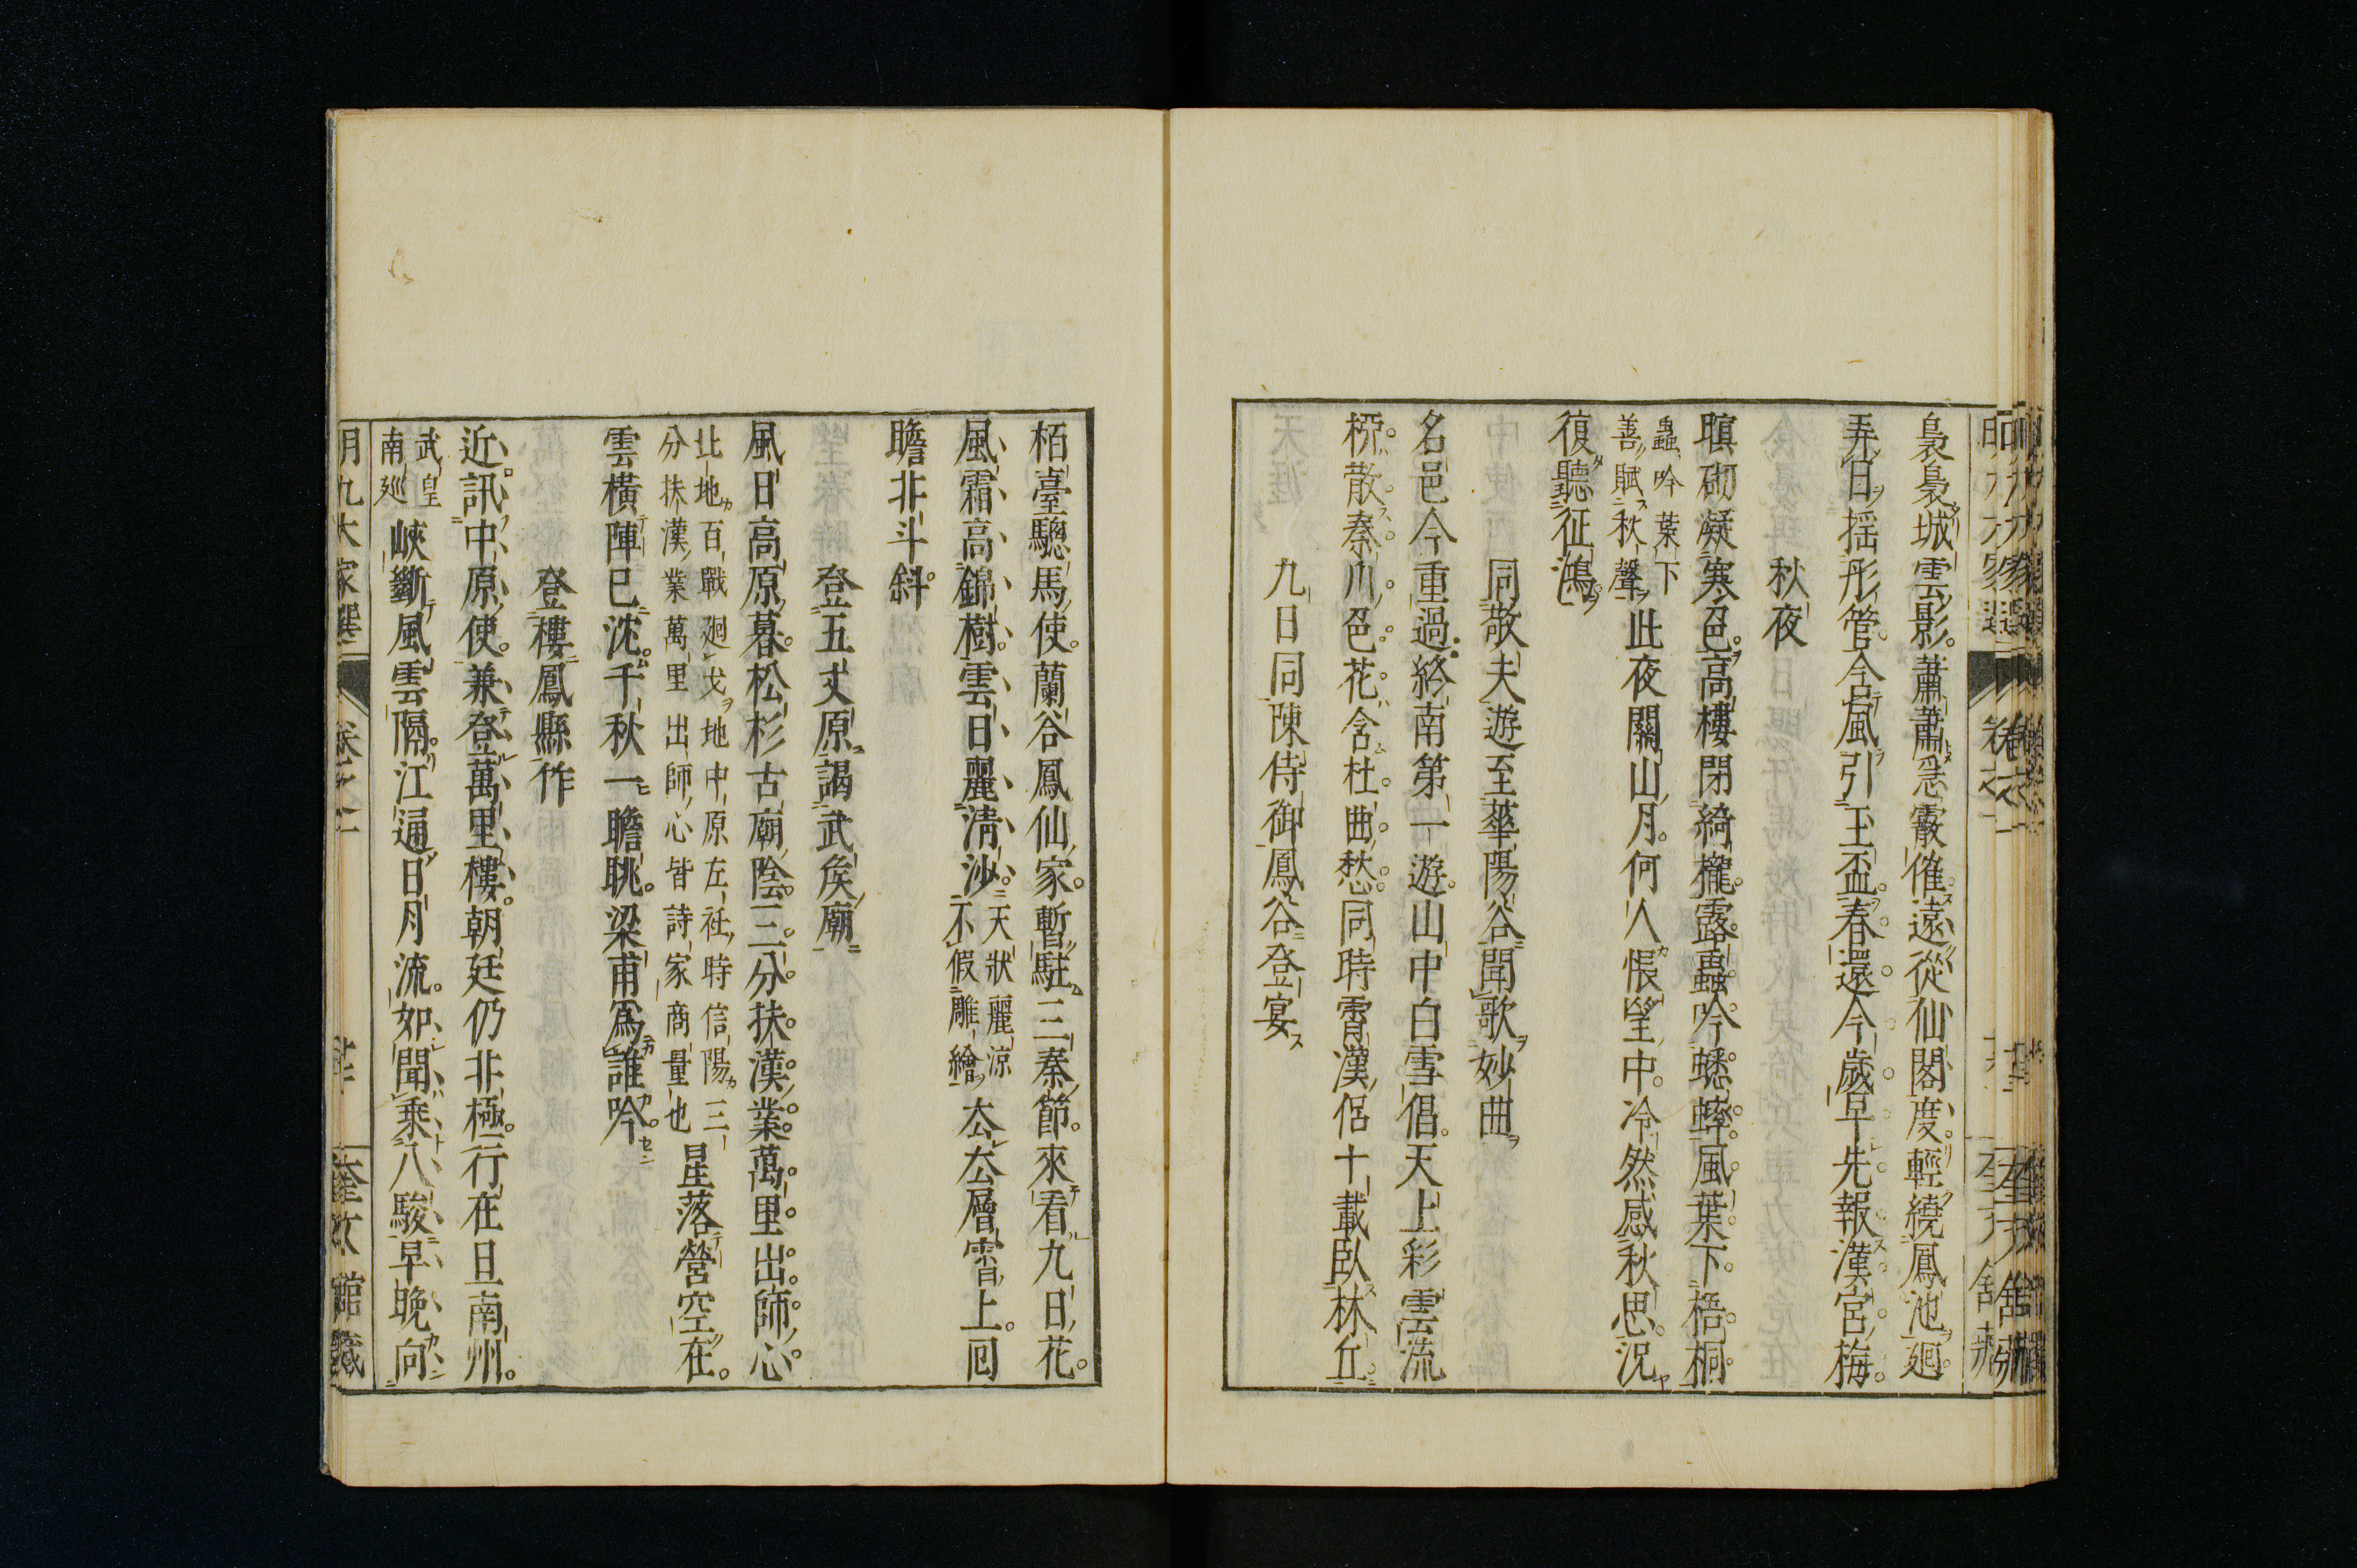 裊裊城雲影蕭蕭急霰催遠從仙閣度輕繞鳳池廻
弄日揺彤管含風引玉盃春還今歲早先報漢宮梅
秋夜
暝砌凝寒色高樓閉綺櫳露蟲吟蟋蟀風葉下梧桐
蟲吟葉下
善賦秋聲
此夜關山月何人悵望中冷然感秋思況
復聽征鴻
同敬夫遊至華陽谷聞歌妙曲
名邑今重過終南第一遊山中白雪倡天上彩雲流
散秦川色花含杜曲愁同時霄漢侶十載臥林丘
九日同陳侍御鳳谷登宴
栢臺驄馬使蘭谷鳳仙家暫駐三秦節來看九日花
風霜高錦樹雲日麗淸沙
天狀麗涼
不假雕繪
太公層霄上囘
瞻北斗斜
登五丈原謁武矦廟
風日高原暮松杉古廟陰三分扶漢業萬里出師心
北地百戰廻戈地中原左社時信陽三
分扶漢業萬里出師心皆詩家商量也
星落營空在
雲橫陣已沈千秋一瞻眺梁甫爲誰吟
登樓鳳縣作
近訊中原使兼登萬里樓朝廷仍北極行在且南州
武皇
南巡
峽斷風雲隔江通日月流如聞乘八駿早晩向
明九大家選
卷之二
奎文館藏